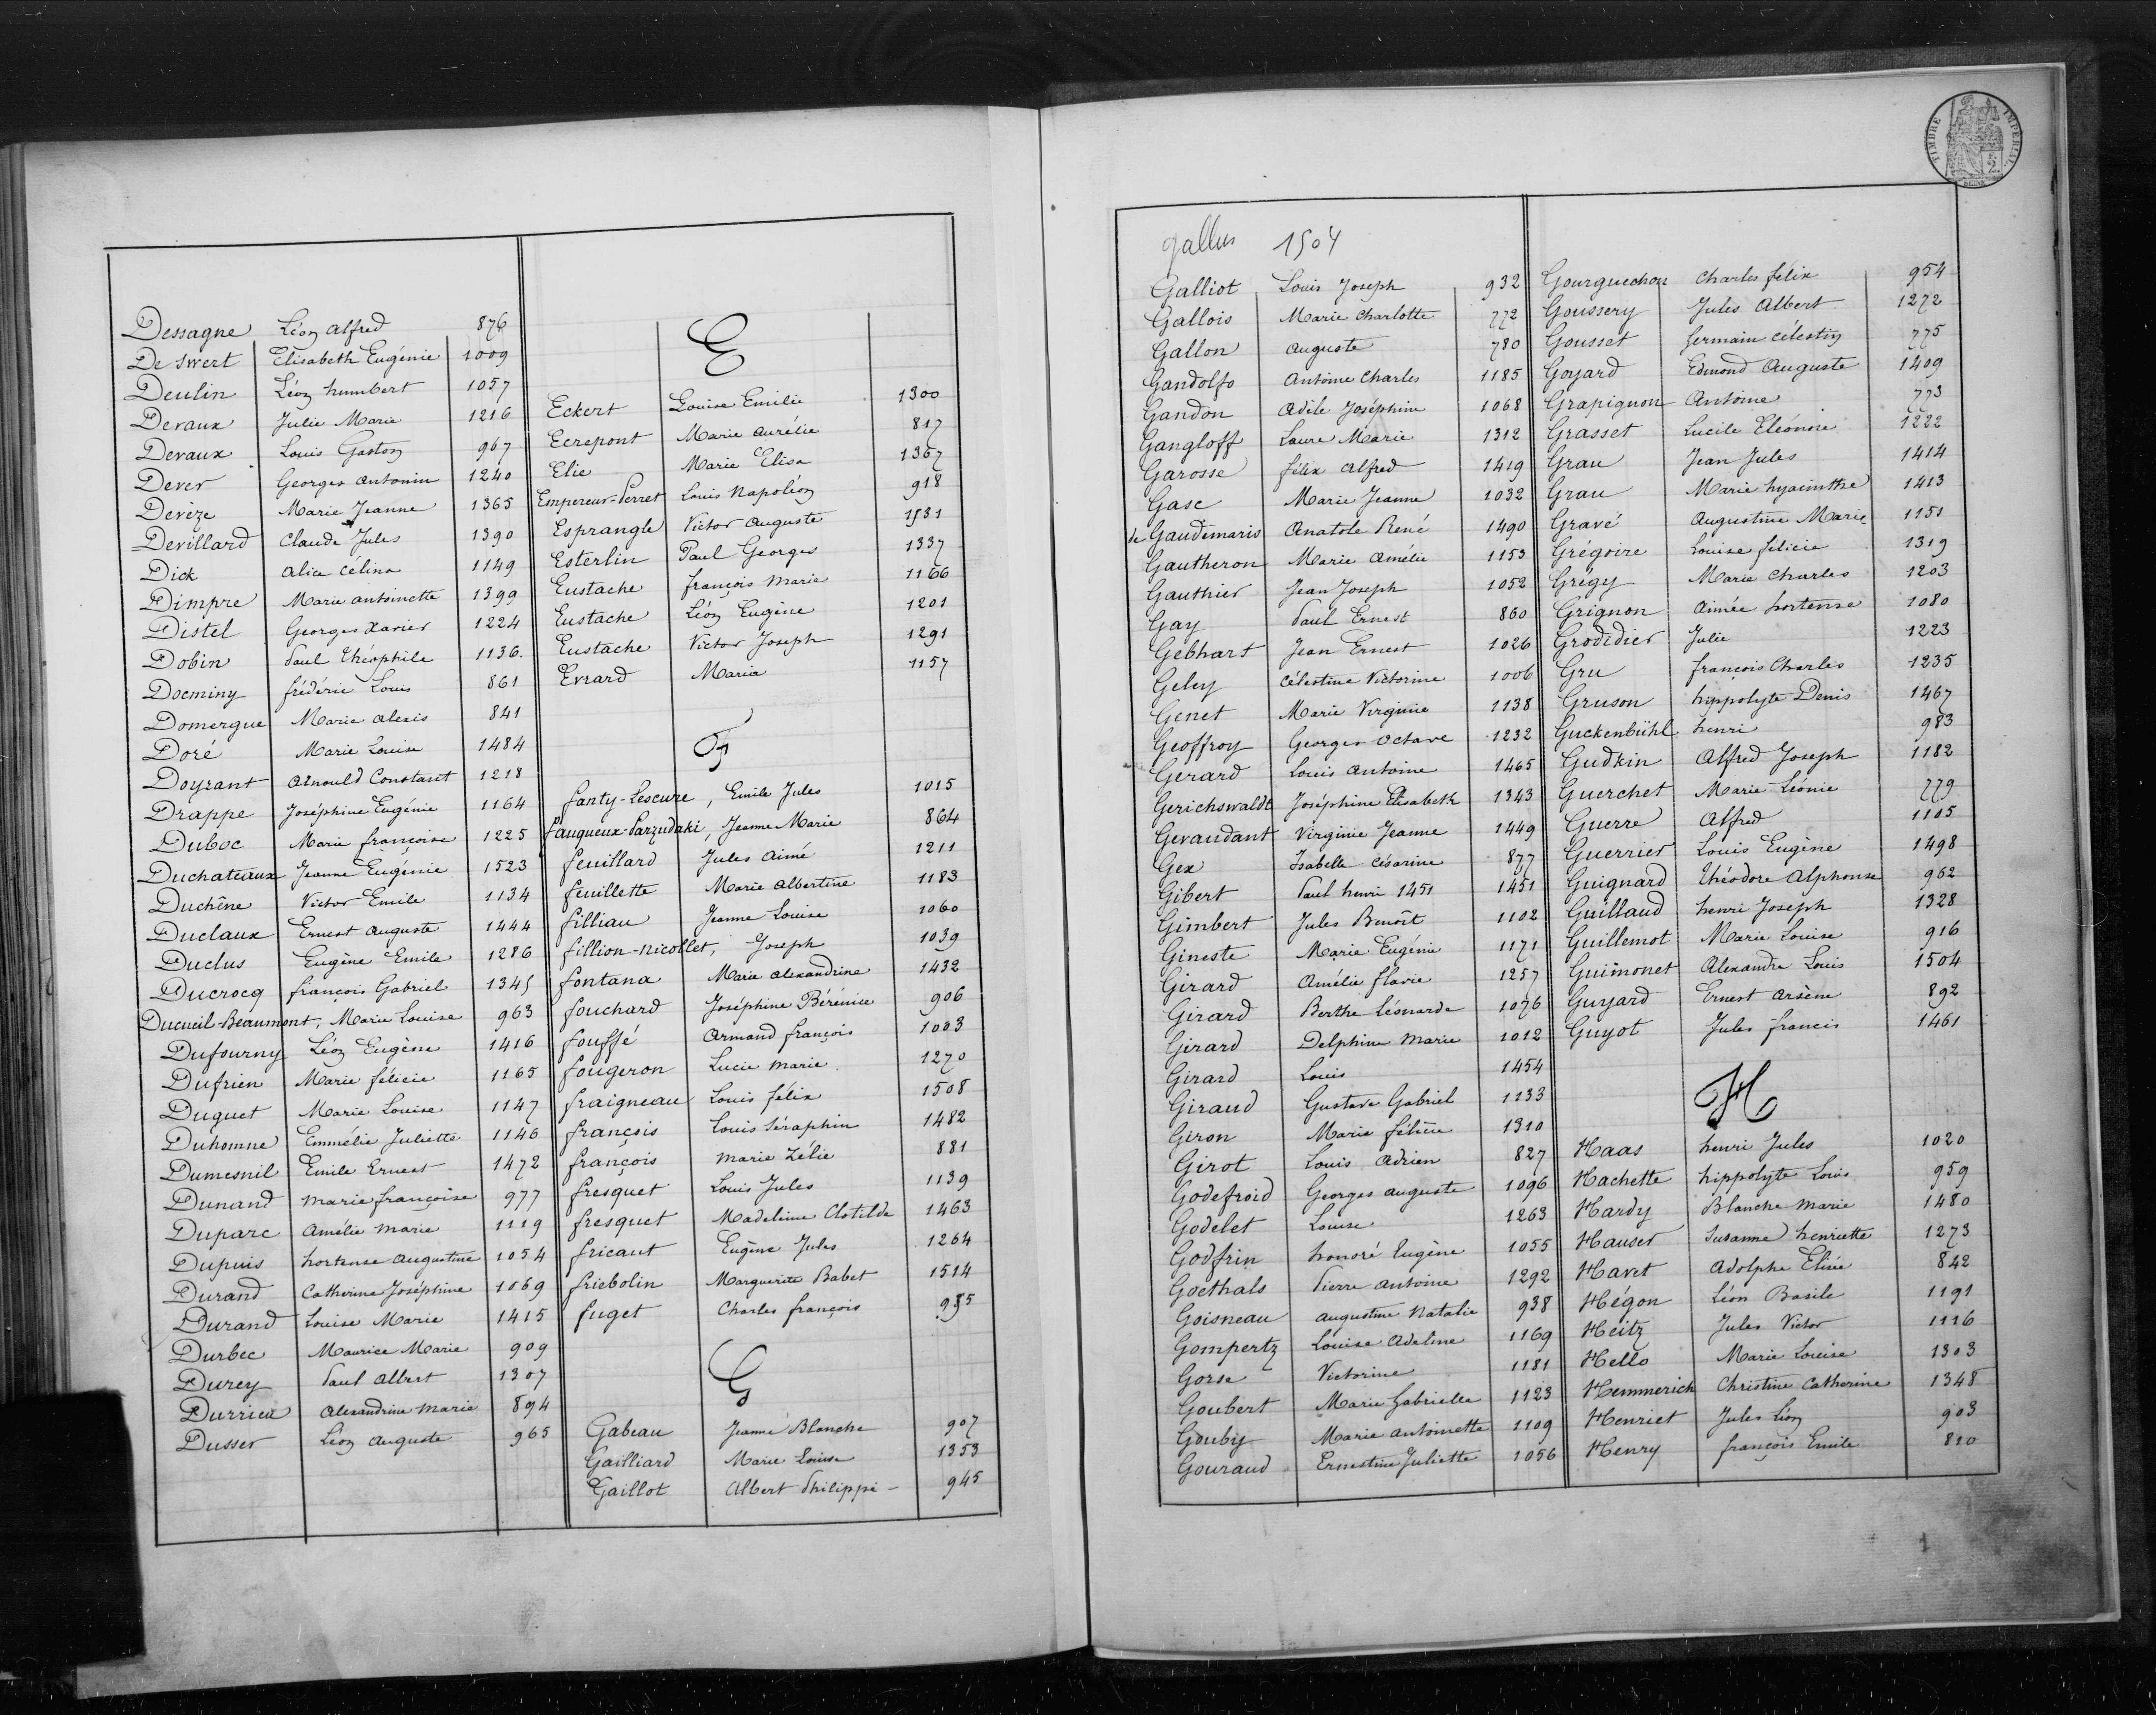 Dessagne Léon Alfred 876
De Swert Elisabeth Eugénie 1009
Deulin Léon humbert 1057
Devaux Julie Marie 1216
Devaux Louis Gaston 967
Dever Georges Antonin 1240
Devèze Marie Jeanne 1365
Devillard Claude Jules 1390
Dick Alice Célina 1149
Dimpre Marie Antoinette 1399
Distel Georges Xavier 1224
Dobin Paul Théophile 1136.
Docminy frédéric Louis 861
Domergue Marie Alexis 841
Doré Marie Louise 1484
Doyzant Arnould Constant 1218
Drappe Joséphine Eugénie 1164
Duboc Marie françoise 1225
Duchateaux Jeanne Eugénie 1523
Duchêne Victor Emile 1134
Duclaux Ernest Auguste 1444
Duclus Eugène Emile 1286
Ducrocq françois Gabriel 1345
Ducueil-Beaumont, Marie Louise 963
Dufourny Léon Eugène 1416
Dufrien Marie félicie 1165
Duguet Marie Louise 1147
Duhomme Emmélie Juliette 1146
Dumesnil Emile Ernest 1472
Dunand Marie françoise 977
Duparc Amélie Marie 1119
Dupuis hortense Augustine 1054
Durand Catherine Joséphine 1069
Durand Louise Marie 1415
Durbec Maurice Marie 909
Durey Paul Albert 1307
Durrieu Alexandrine Marie 894
Dusser Léon Auguste 965
E
Eckert Louise Emilie 1300
Ecrepont Marie Aurélie 817
Elie Marie Elisa 1367
Empereur-Perret Louis Napoléon 918
Esprangle Victor Auguste 1531
Esterlin Paul Georges 1337
Eustache françois Marie 1166
Eustache Léon Eugène 1201
Eustache Victor Joseph 1291
Evrard Maria 1157
F
fanty-Lescure, Emile Jules 1015
fauqueux-Parzudaki, Jeanne Marie 864
feuillard Jules Aimé 1211
feuillette Marie Albertine 1183
filliau Jeanne Louise 1060
fillion-Nicollet, Joseph 1039
fontana Marie Alexandrine 1432
fouchard Joséphine Bérénice 906
fouffé Armand françois 1003
fougeron Lucie Marie 1270
fraigneau Louis félix 1508
françois Louis Séraphin 1482
françois Marie Zélie 881
fresquet Louis Jules 1139
fresquet Madeleine Clotilde 1463
fricaut Eugène Jules 1264
friebolin Marguerite Babet 1514
fuget Charles françois 935
G
Gabeau Jeanne Blanche 907
Gailliard Marie Louise 1353
Gaillot Albert Philippe - 945
gallus 1504
Galliot Louis Joseph 932
Gallois Marie Charlotte 772
Gallon Auguste 780
Gandolfo Antoine Charles 1185
Gandon Adèle Joséphine 1068
Gangloff Laure Marie 1312
Garosse félix Alfred 1419
Gasc Marie Jeanne 1032
de Gaudemaris Anatole René 1490
Gautheron Marie Amélie 1153
Gauthier Jean Joseph 1052
Gay Paul Ernest 860
Gebhart Jean Ernest 1026
Geley Célestine Victorine 1006
Genet Marie Virginie 1138
Geoffroy Georges Octave 1232
Gerard Louis Antoine 1465
Gerichswaldt Joséphine Elisabeth 1343
Gevaudant Virginie Jeanne 1449
Gex Isabelle Césarine 877
Gibert Paul henri 1451 1451
Gimbert Jules Benoît 1102
Gineste Marie Eugénie 1171
Girard Amélie flavie 1257
Girard Berthe Léonarde 1076
Girard Delphine Marie 1012
Girard Louis 1454
Giraud Gustave Gabriel 1233
Giron Marie félicie 1310
Girot Louis Adrien 827
Godefroid Georges Auguste 1096
Godelet Louise 1263
Godfrin honoré Eugène 1055
Goethals Pierre Antoine 1292
Goisneau Augustine Natalie 938
Gompertz Louise Adeline 1169
Gorse Victorine 1181
Goubert Marie Gabrielle 1123
Gouby Marie Antoinette 1109
Gouraud Ernestine Juliette 1056
Gourguechon Charles félix 954
Goussery Jules Albert 1272
Gousset Germain Célestin 775
Goyard Edmond Auguste 1409
Grapignon Antoine 773
Grasset Lucile Eléonore 1222
Grau Jean Jules 1414
Grau Marie hyacinthe 1413
Gravé Augustine Marie 1151
Grégoire Louise félicie 1319
Grégy Marie Charles 1203
Grignon Aimée hortense 1080
Grodidier Julie 1223
Gru françois Charles 1235
Gruson hippolyte Denis 1467
Guckenbühl henri 983
Gudkin Alfred Joseph 1182
Guerchet Marie Léonie 779
Guerre Alfred 1105
Guerrier Louis Eugène 1498
Guignard Théodore Alphonse 962
Guillaud henri Joseph 1328
Guillemot Marie Louise 916
Guimonet Alexandre Louis 1504
Guyard Ernest Arsène 892
Guyot Jules francis 1461
H
Haas henri Jules 1020
Hachette hippolyte Louis 959
Hardy Blanche Marie 1480
Hauser Susanne henriette 1273
Havet Adolphe Elisée 842
Hégon Léon Basile 1191
Heitz Jules Victor 1116
Hello Marie Louise 1303
Hemmerich Christine Catherine 1348
Henriet Jules Léon 903
Henry françois Emile 810
TIMBRE IMPERIAL